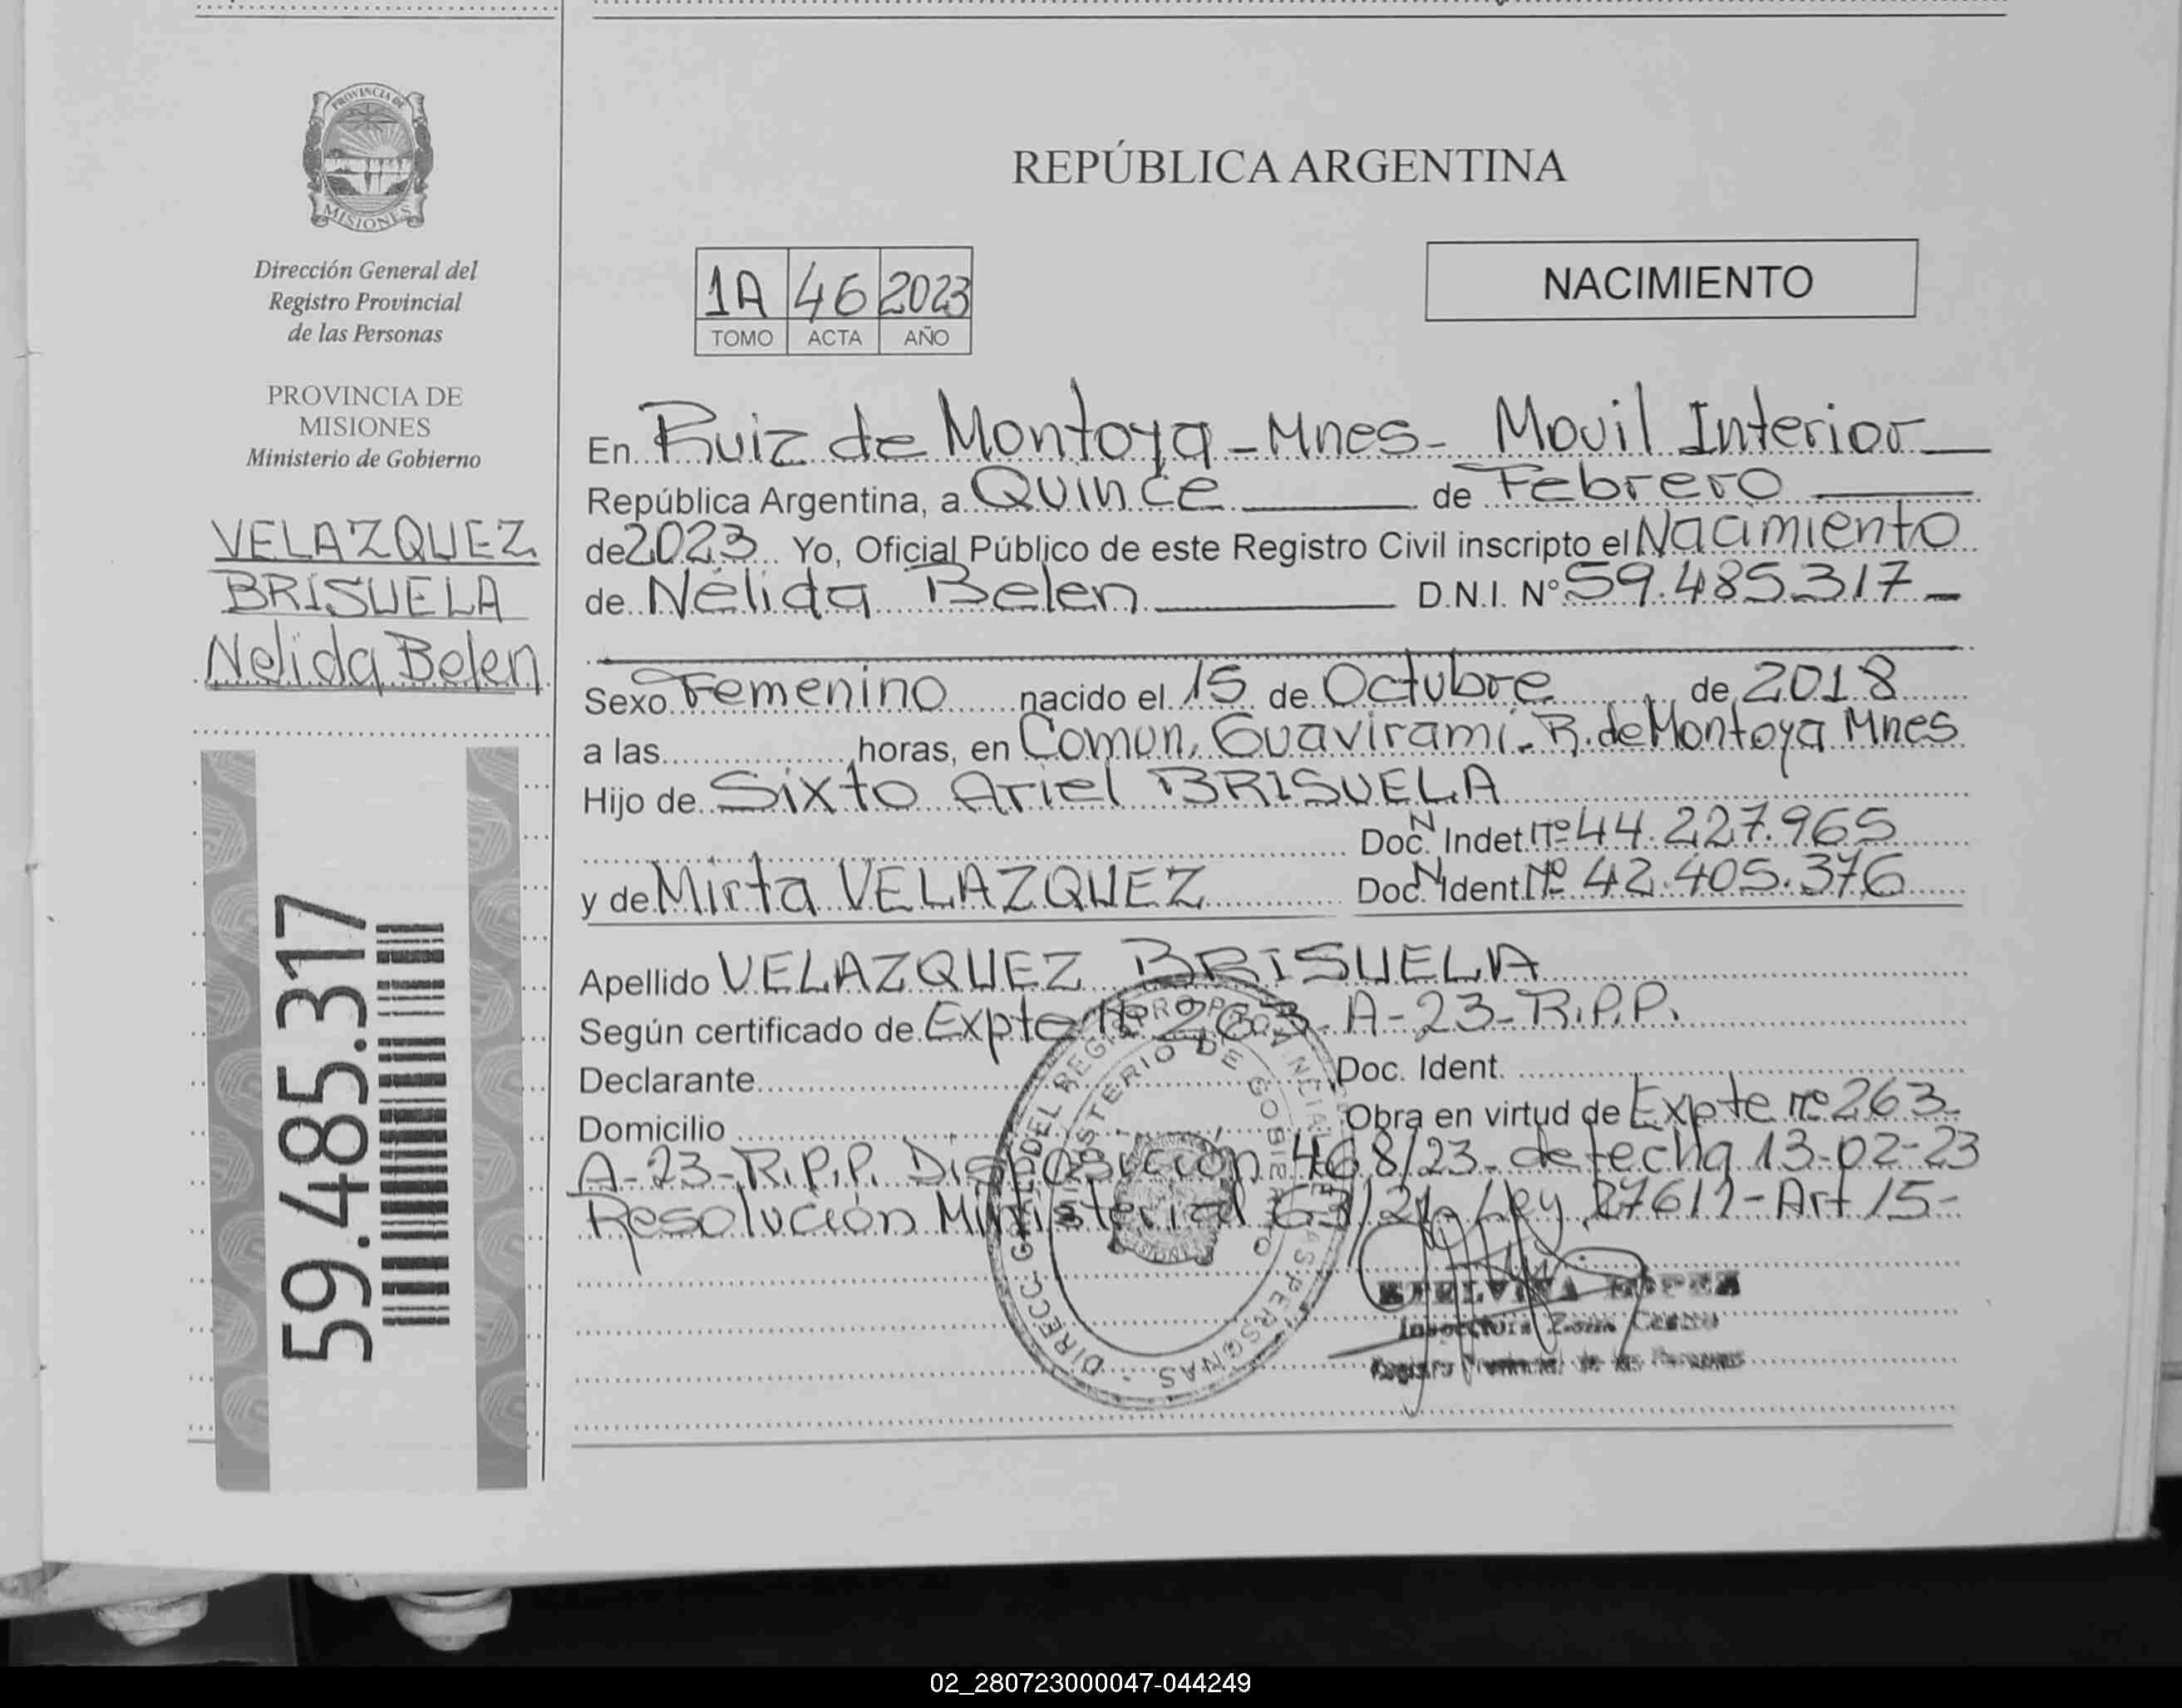 PROVINCIA DE
MISIONES
Dirección General del
Registro Provincial
de las Personas
PROVINCIA DE
MISIONES
Ministerio de Gobierno
VELAZQUEZ
BRISUELA
Nelida Belen
59.485.317
REPÚBLICA ARGENTINA
1A 46 2023
TOMO ACTA AÑO
NACIMIENTO
En Ruiz de Montoya - Mnes - Movil Interior
República Argentina, a Quince de Febrero
de 2023 Yo, Oficial Público de este Registro Civil inscripto el Nacimiento
de Nélida Belen D.N.I. N° 59.485.317
Sexo Femenino nacido el 15 de Octubre de 2018
a las horas, en Comun. Guaviramí - R. de Montoya Mnes
Hijo de Sixto Ariel BRISUELA
Doc. N Indet. Nº 44.227.965
y de Mirta VELAZQUEZ Doc. N Ident. Nº 42.405.376
Apellido VELAZQUEZ BRISUELA
Según certificado de Expte Nº 263 - A - 23 - R.P.P.
Declarante Doc. Ident.
Domicilio Obra en virtud de Expte nº 263 -
A - 23 - R.P.P. Disposición 468/23 - de fecha 13-02-23
Resolución Ministerial 63/21 - Ley 27611 - Art 15 -
DIRECC. GRAL. DEL REGISTRO PROVINCIAL DE LAS PERSONAS
MINISTERIO DE GOBIERNO
MISIONES
ETELVINA
Zona Centro
Registro Provincial de las Personas
02_280723000047-044249